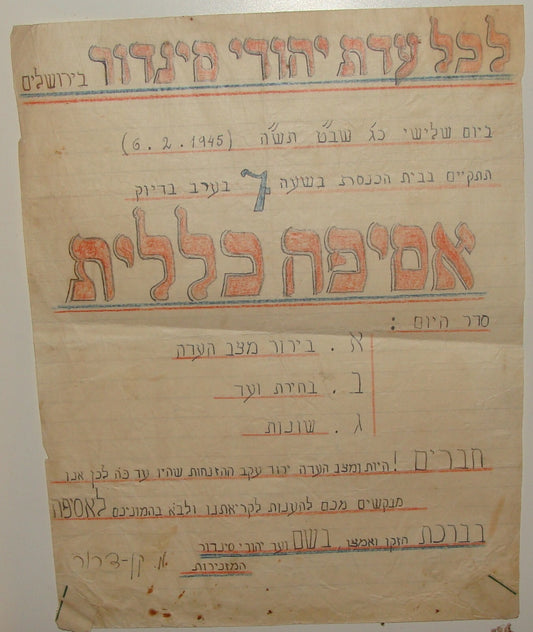 לכל עדת יהודי סינדור בירושלים
ביום שלישי כ"ג שבט תש"ה (6.2.1945)
תתקיים בבית הכנסת בשעה 7 בערב בדיוק
אסיפה כללית
סדר היום:
א. בירור מצב העדה
ב. בחירת ועד
ג. שונות
חברים! היות ומצב העדה ירוד עקב ההזנחות שהיו עד כה לכן אנו
מבקשים מכם להענות לקריאתנו ולבא בהמוניכם לאסיפה
בברכת חזקו ואמצו, בשם ועד יהודי סינדור
המזכירות